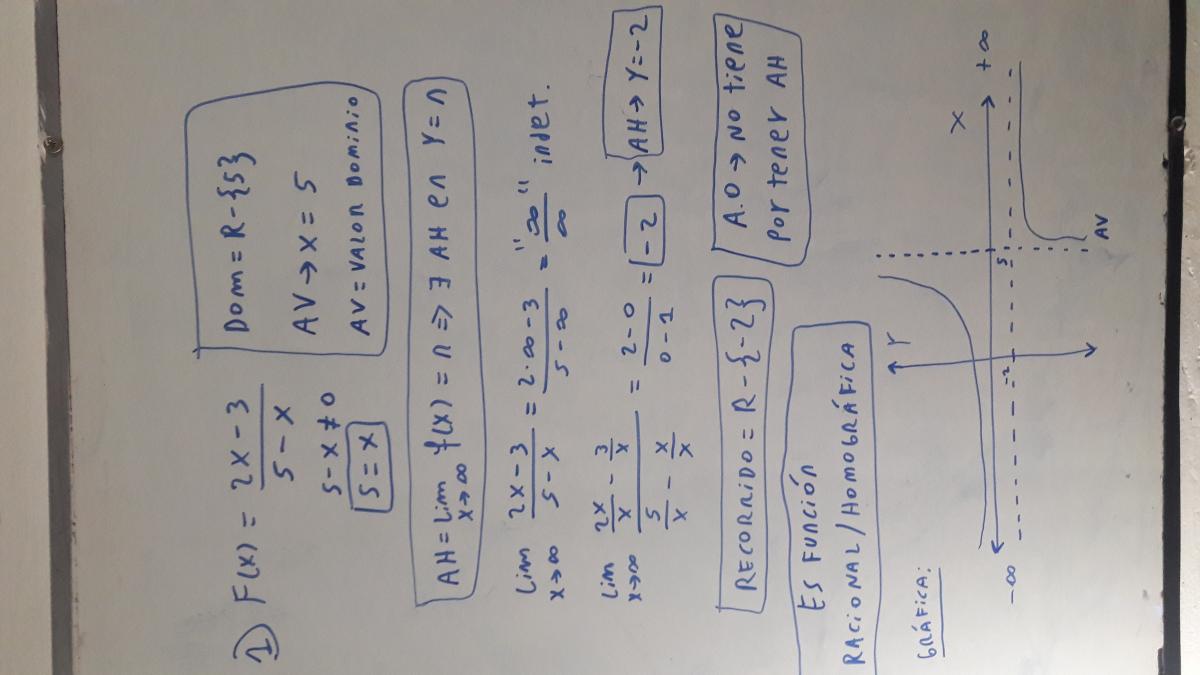 1) F(x) = (2x - 3)/(5 - x)
5 - x ≠ 0
5 = x
Dom = R - {5}
AV → x = 5
AV = VALOR DOMINIO
AH = Lim x→∞ f(x) = n ⇒ ∃ AH en Y = n
Lim x→∞ (2x - 3)/(5 - x) = (2·∞ - 3)/(5 - ∞) = "∞/∞" indet.
Lim x→∞ (2x/x - 3/x)/(5/x - x/x) = (2 - 0)/(0 - 1) = -2 → AH → Y = -2
RECORRIDO = R - {-2}
A.O → NO tiene
por tener AH
ES FUNCIÓN
RACIONAL/HOMOGRÁFICA
GRÁFICA:
Y
X
-∞
+∞
5
-2
AV